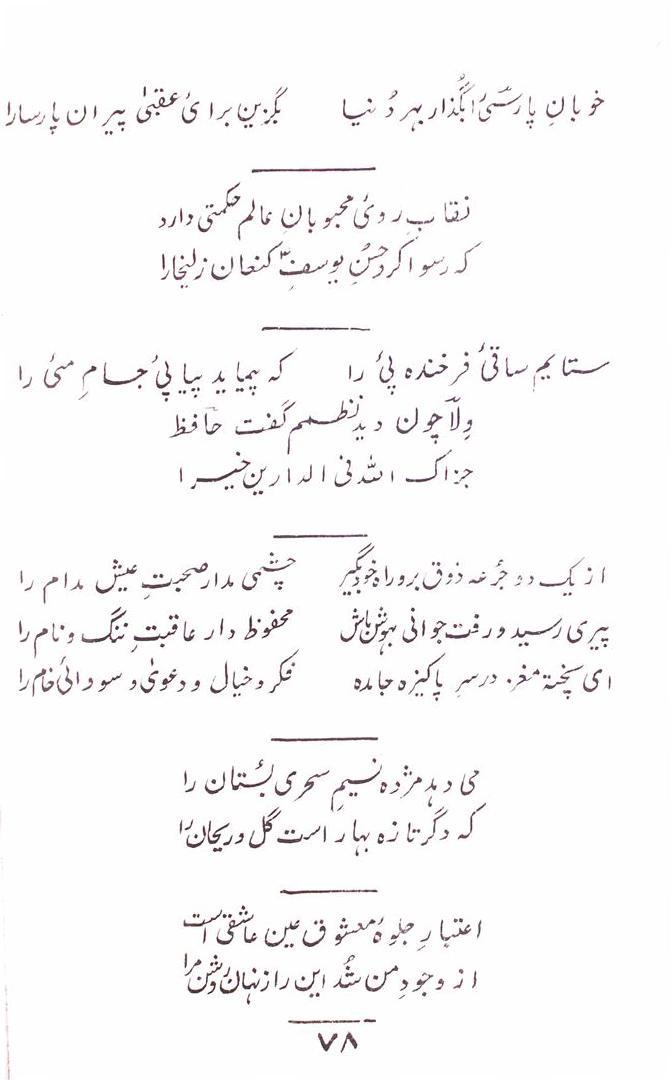 خوبانِ پارسیؑ را بگذار بہر دُنیا بگزین برایٔ عقبیٰ پیران پارسا را
نقابِ رویٔ محبوبانِ عالم حکمتی دارد
کہ رسوا کرد حسنِ یوسفِؑ کنعان زلیخا را
ستایم ساقیٔ فرخندہ پیٔ را کہ پیماید پیاپیٔ جامِ میٔ را
وِلّا چون دید نظمم گفت حافظ
جزاک اللہ فی الدارین خیرا
از یک دو جُرعہ ذوق برو راہِ خود بگیر چشمی مدار صحبتِ عیش مدام را
پیری رسید و رفت جوانی بہوش باش محفوظ دار عاقبتِ ننگ و نام را
ای پختہ مغز در سرِ پاکیزہ جا مدہ فکر و خیال و دعویٰ و سودائیٔ خام را
می دہد مژدہ نسیمِ سحری بُستان را
کہ دگر تازہ بہار است گل و ریحان را
اعتبارِ جلوۂ معشوق عین عاشقی است
از وجودِ من شُد این راز نہان روشن مرا
۷۸